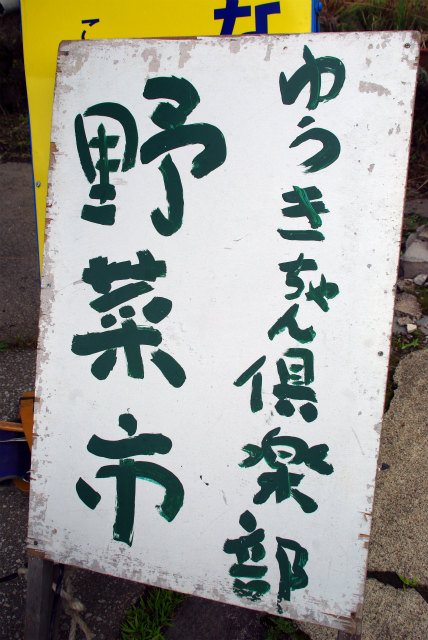 ゆうきちゃん倶楽部
野菜市
こ
な